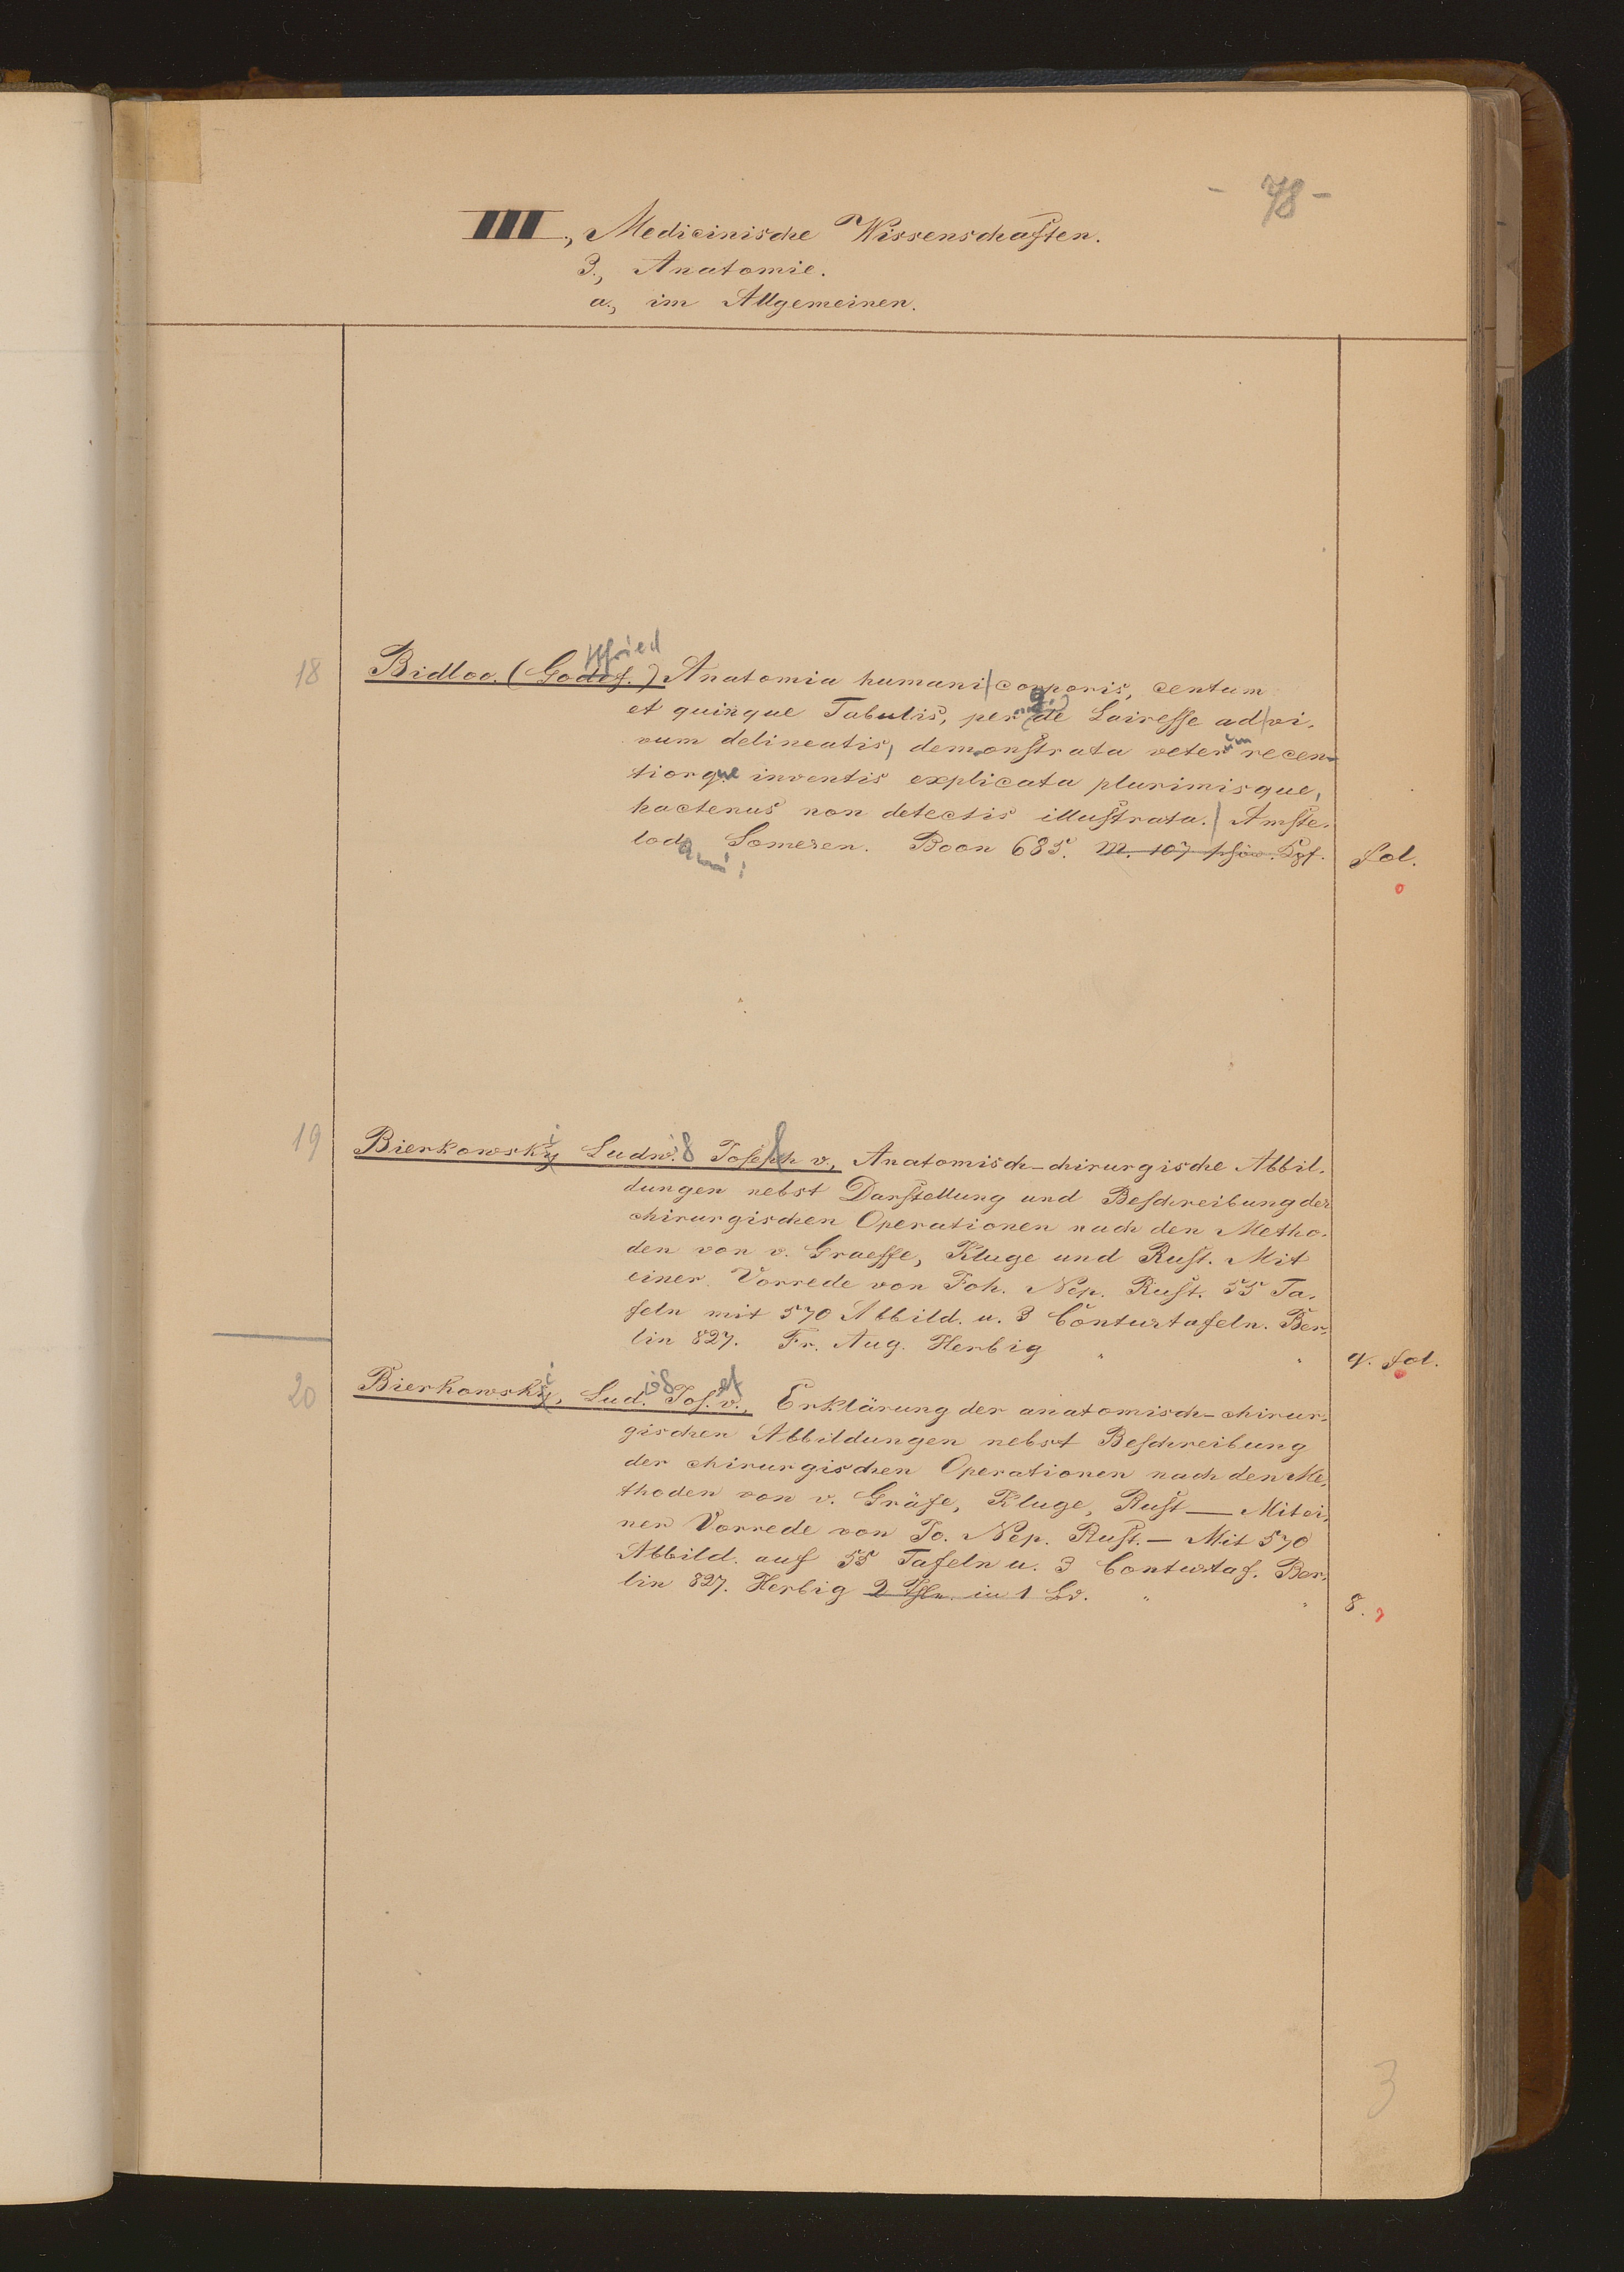 - 78 -
III., Medicinische Wissenschaften.
3., Anatomie.
a., im Allgemeinen.
ttfried
18 Bidloo. (Godof.) Anatomia humani|corporis, centum
et quinque Tabulis, per G. de Lairesse ad|vi-
vum delineatis, demonstrata veterum recen-
tiorque inventis explicata plurimisque,
hactenus non detectis illustrata.| Amste-
lodami: Someren. Boon 685. M. 107 Kpf. fol.
19 Bierkowski Ludw. Joseph v., Anatomisch-chirurgische Abbil-
dungen nebst Darstellung und Beschreibung der
chirurgischen Operationen nach den Metho-
den von v. Graeffe, Kluge und Rust. Mit
einer Vorrede von Joh. Nep. Rust. 55 Ta-
feln mit 570 Abbild. u. 3 Conturtafeln. Ber-
lin 827. Fr. Aug. Herbig " " q. fol.
20 Bierkowski, Lud. Jos. v., Erklärung der anatomisch-chirur-
gischen Abbildungen nebst Beschreibung
der chirurgischen Operationen nach den Me-
thoden von v. Gräfe, Kluge, Rust — Mit ei-
ner Vorrede von Jo. Nep. Rust. — Mit 570
Abbild. auf 55 Tafeln u. 3 Conturtaf. Ber-
lin 827. Herbig 2 Thle. in 1 Bd. " " 8.
3